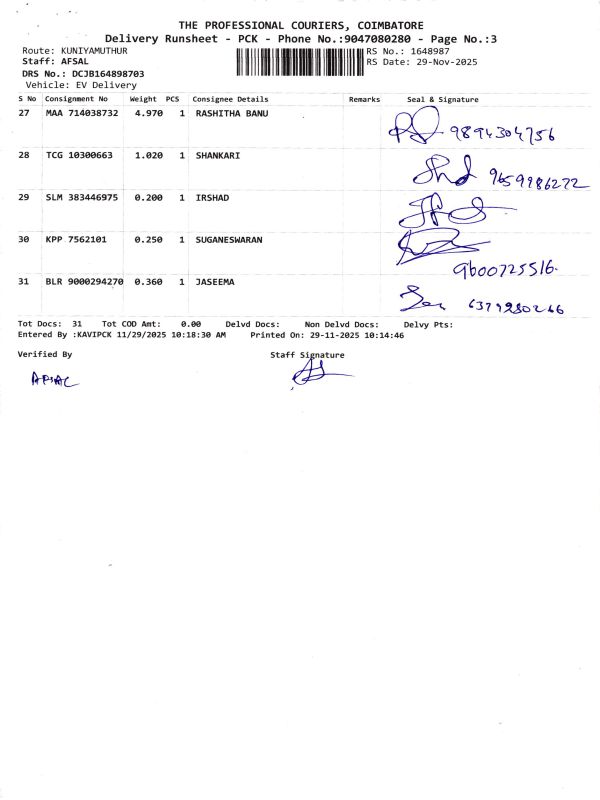 THE PROFESSIONAL COURIERS, COIMBATORE
Delivery Runsheet - PCK - Phone No.:9047080280 - Page No.:3
Route: KUNIYAMUTHUR RS No.: 1648987
Staff: AFSAL RS Date: 29-Nov-2025
DRS No.: DCJB164898703
Vehicle: EV Delivery
S No Consignment No Weight PCS Consignee Details Remarks Seal & Signature
27 MAA 714038732 4.970 1 RASHITHA BANU 9894304756
28 TCG 10300663 1.020 1 SHANKARI 9659986272
29 SLM 383446975 0.200 1 IRSHAD
30 KPP 7562101 0.250 1 SUGANESWARAN
9600725516.
31 BLR 9000294270 0.360 1 JASEEMA
6379280266
Tot Docs: 31 Tot COD Amt: 0.00 Delvd Docs: Non Delvd Docs: Delvy Pts:
Entered By :KAVIPCK 11/29/2025 10:18:30 AM Printed On: 29-11-2025 10:14:46
Verified By Staff Signature
AFSAL